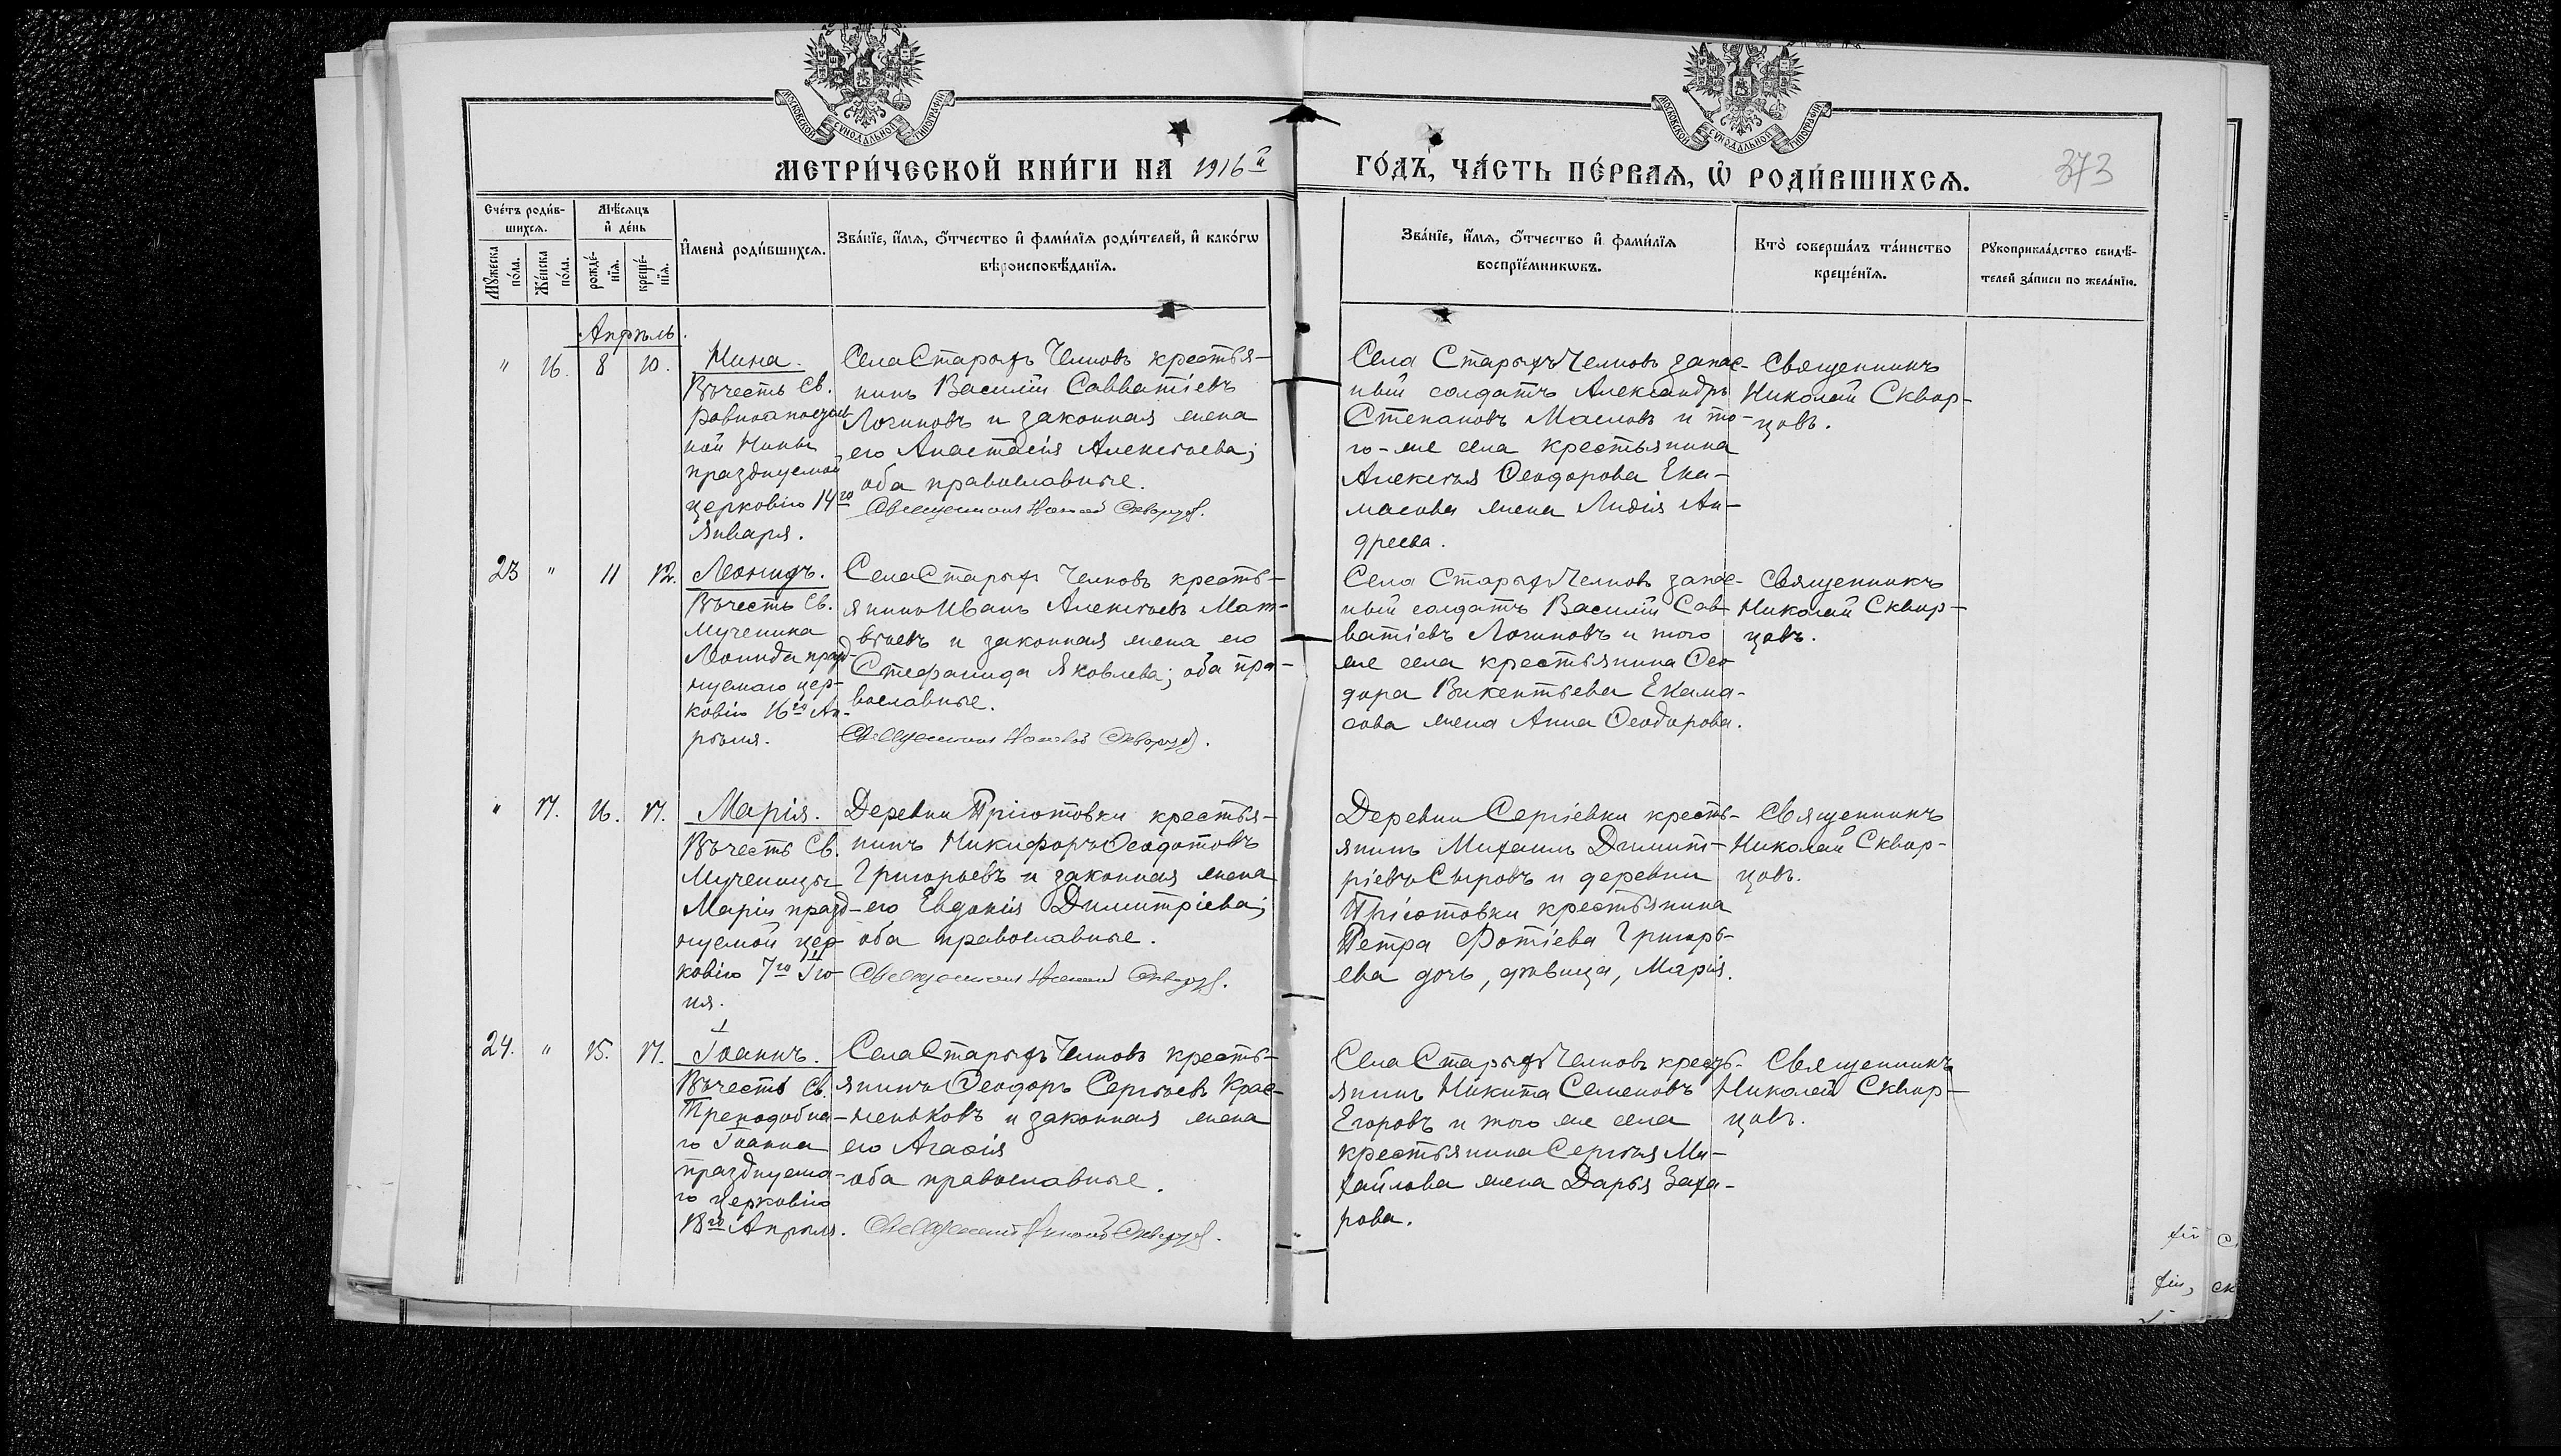 МОСКОВСКОЙ СѴНОДАЛЬНОЙ ТИПОГРАФІИ
МОСКОВСКОЙ СѴНОДАЛЬНОЙ ТИПОГРАФІИ
МЕТРИ́ЧЕСКОЙ КНИ́ГИ НА 1916й
ГО́ДЪ, ЧА́СТЬ ПЕ́РВАѦ, Ѡ҆ РОДИ́ВШИХСѦ.
373
Сче́тъ роди́в-
шихсѧ.
Мꙋ́жеска
по́ла.
Же́нска
по́ла.
Мѣ́сѧцъ
и҆ де́нь
рожде́-
нїѧ.
креще́-
нїѧ.
И҆мена̀ роди́вшихсѧ.
Зва́нїе, и҆́мѧ, ѻ҆́тчество и҆ фами́лїѧ роди́телей, и҆ како́гѡ
вѣроисповѣ́данїѧ.
Зва́нїе, и҆́мѧ, ѻ҆́тчество и҆ фами́лїѧ
воспрїе́мникѡвъ.
Кто̀ соверша́лъ та́инство
креще́нїѧ.
Рꙋкоприкла́дство свидѣ́-
телей за́писи по жела́нїю.
Апрѣль.
" 16. 8 10.
Нина.
Въ честь Св.
Равноапостоль-
ной Нины
празднуемой
церковію 14го
Января.
Села Старыхъ Челновъ крестья-
нинъ Василій Савватіевъ
Логиновъ и законная жена
его Анастасія Алексѣева;
оба православные.
Священникъ Николай Скворцовъ.
Села Старыхъ Челновъ запас-
ный солдатъ Александръ
Степановъ Масловъ и то-
го-же села крестьянина
Алексѣя Ѳеодорова Ека-
масова жена Лидія Ан-
дреева.
Священникъ
Николай Сквор-
цовъ.
23 " 11 12.
Леонидъ.
Въ честь Св.
Мученика
Леонида празд-
нуемаго цер-
ковію 16го Ап-
рѣля.
Села Старыхъ Челновъ кресть-
янинъ Иванъ Алексѣевъ Мат-
вѣевъ и законная жена его
Стефанида Яковлева; оба пра-
вославные.
Священникъ Николай Скворцовъ.
Села Старыхъ Челновъ запас-
ный солдатъ Василій Сав-
ватіевъ Логиновъ и того
же села крестьянина Ѳео-
дора Викентьева Екама-
сова жена Анна Ѳеодорова.
Священникъ
Николай Сквор-
цовъ.
" 17. 16. 17.
Марія.
Въ честь Св.
Мученицы
Маріи празд-
нуемой цер-
ковію 7го Ію-
ня.
Деревни Пріютовки крестья-
нинъ Никифоръ Ѳеодотовъ
Григорьевъ и законная жена
его Евдокія Димитріева;
оба православные.
Священникъ Николай Скворцовъ.
Деревни Сергіевки кресть-
янинъ Михаилъ Димит-
ріевъ Сыровъ и деревни
Пріютовки крестьянина
Петра Фотіева Григорь-
ева дочь, дѣвица, Марія.
Священникъ
Николай Сквор-
цовъ.
24. " 15. 17.
Іоаннъ.
Въ честь Св.
Преподобна-
го Іоанна
празднуема-
го церковію
18го Апрѣля.
Села Старыхъ Челновъ кресть-
янинъ Ѳеодоръ Сергѣевъ Крас-
неньковъ и законная жена
его Агаѳія
оба православные.
Священникъ Николай Скворцовъ.
Села Старыхъ Челновъ кресть-
янинъ Никита Семеновъ
Егоровъ и того же села
крестьянина Сергѣя Ми-
хайлова жена Дарья Заха-
рова.
Священникъ
Николай Сквор-
цовъ.